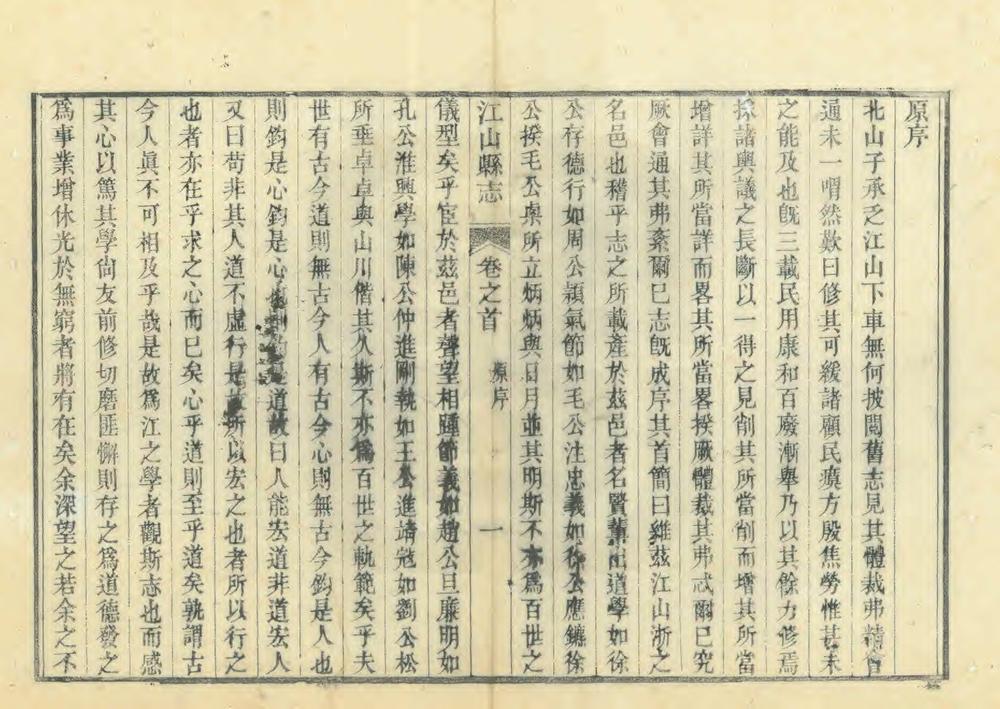 原序
北山子承乏江山下車無何披閱舊志見其體裁弗精會
通未一喟然歎曰修其可緩諸顧民瘼方殷焦勞惟甚未
之能及也旣三載民用康和百廢漸舉乃以其餘力修焉
採諸輿議之長斷以一得之見削其所當削而增其所當
增詳其所當詳而畧其所當畧揆厥體裁其弗忒爾已究
厥會通其弗紊爾已志旣成序其首簡曰維茲江山浙之
名邑也稽乎志之所載產於茲邑者名賢輩出道學如徐
公存德行如周公穎氣節如毛公注忠義如徐公應鑣徐
公揆毛公桌所立炳炳與日月並其明斯不亦爲百世之
江山縣志 卷之首 原序 一
儀型矣乎宦於茲邑者聲望相踵節義如趙公旦廉明如
孔公淮興學如陳公仲進剛執如王公進靖寇如劉公松
所垂卓卓與山川偕其久斯不亦爲百世之軌範矣乎夫
世有古今道則無古今人有古今心則無古今鈞是人也
則鈞是心鈞是心道故曰人能宏道非道宏人
又曰苟非其人道不虛行是故所以宏之也者所以行之
也者亦在乎求之心而已矣心乎道則至乎道矣孰謂古
今人眞不可相及乎哉是故爲江之學者觀斯志也而感
其心以篤其學尙友前修切磨匪懈則存之爲道德發之
爲事業增休光於無窮者將有在矣余深望之若余之不